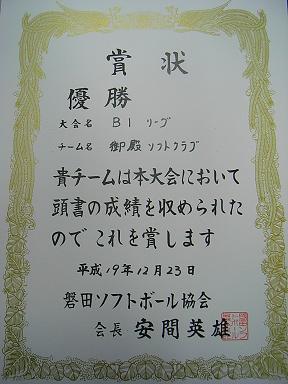 賞状
優勝
大会名 B1 リーグ
チーム名 御殿ソフトクラブ
貴チームは本大会において
頭書の成績を収められた
のでこれを賞します
平成19年12月23日
磐田ソフトボール協会
会長 安間英雄